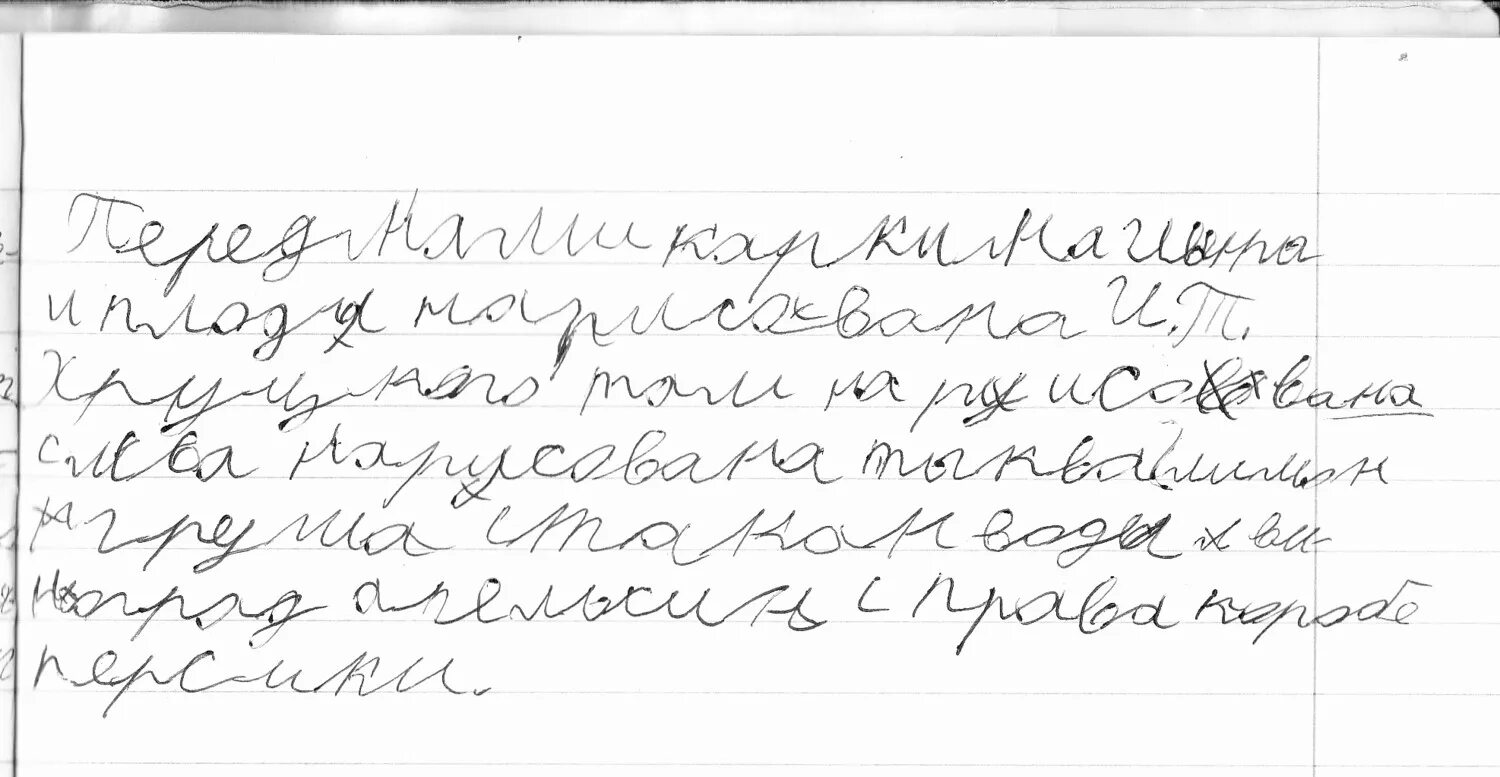 Перед нами каркина Цынра
и плоды нарисавана И.Т.
Хруцкого там нарисована
слева нарисована тыква лимон
груша стакан воды ви
ноград апельсин справа коробе
персики.